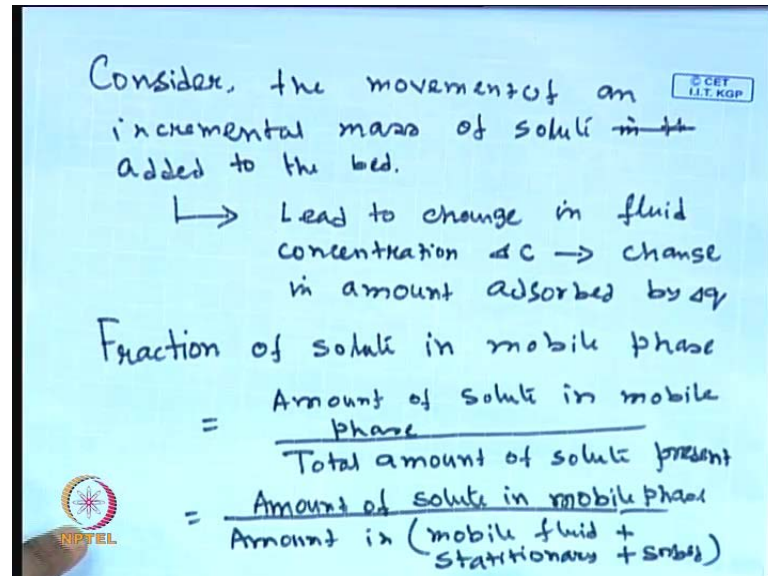 Consider, the movement of an
© CET
I.I.T. KGP
incremental mass of solute in th
added to the bed.
↳ Lead to change in fluid
concentration ΔC → change
in amount adsorbed by Δq
Fraction of solute in mobile phase
= Amount of solute in mobile
phase
Total amount of solute present
= Amount of solute in mobile phase
Amount in (mobile fluid +
statitionary + sorbed)
NPTEL